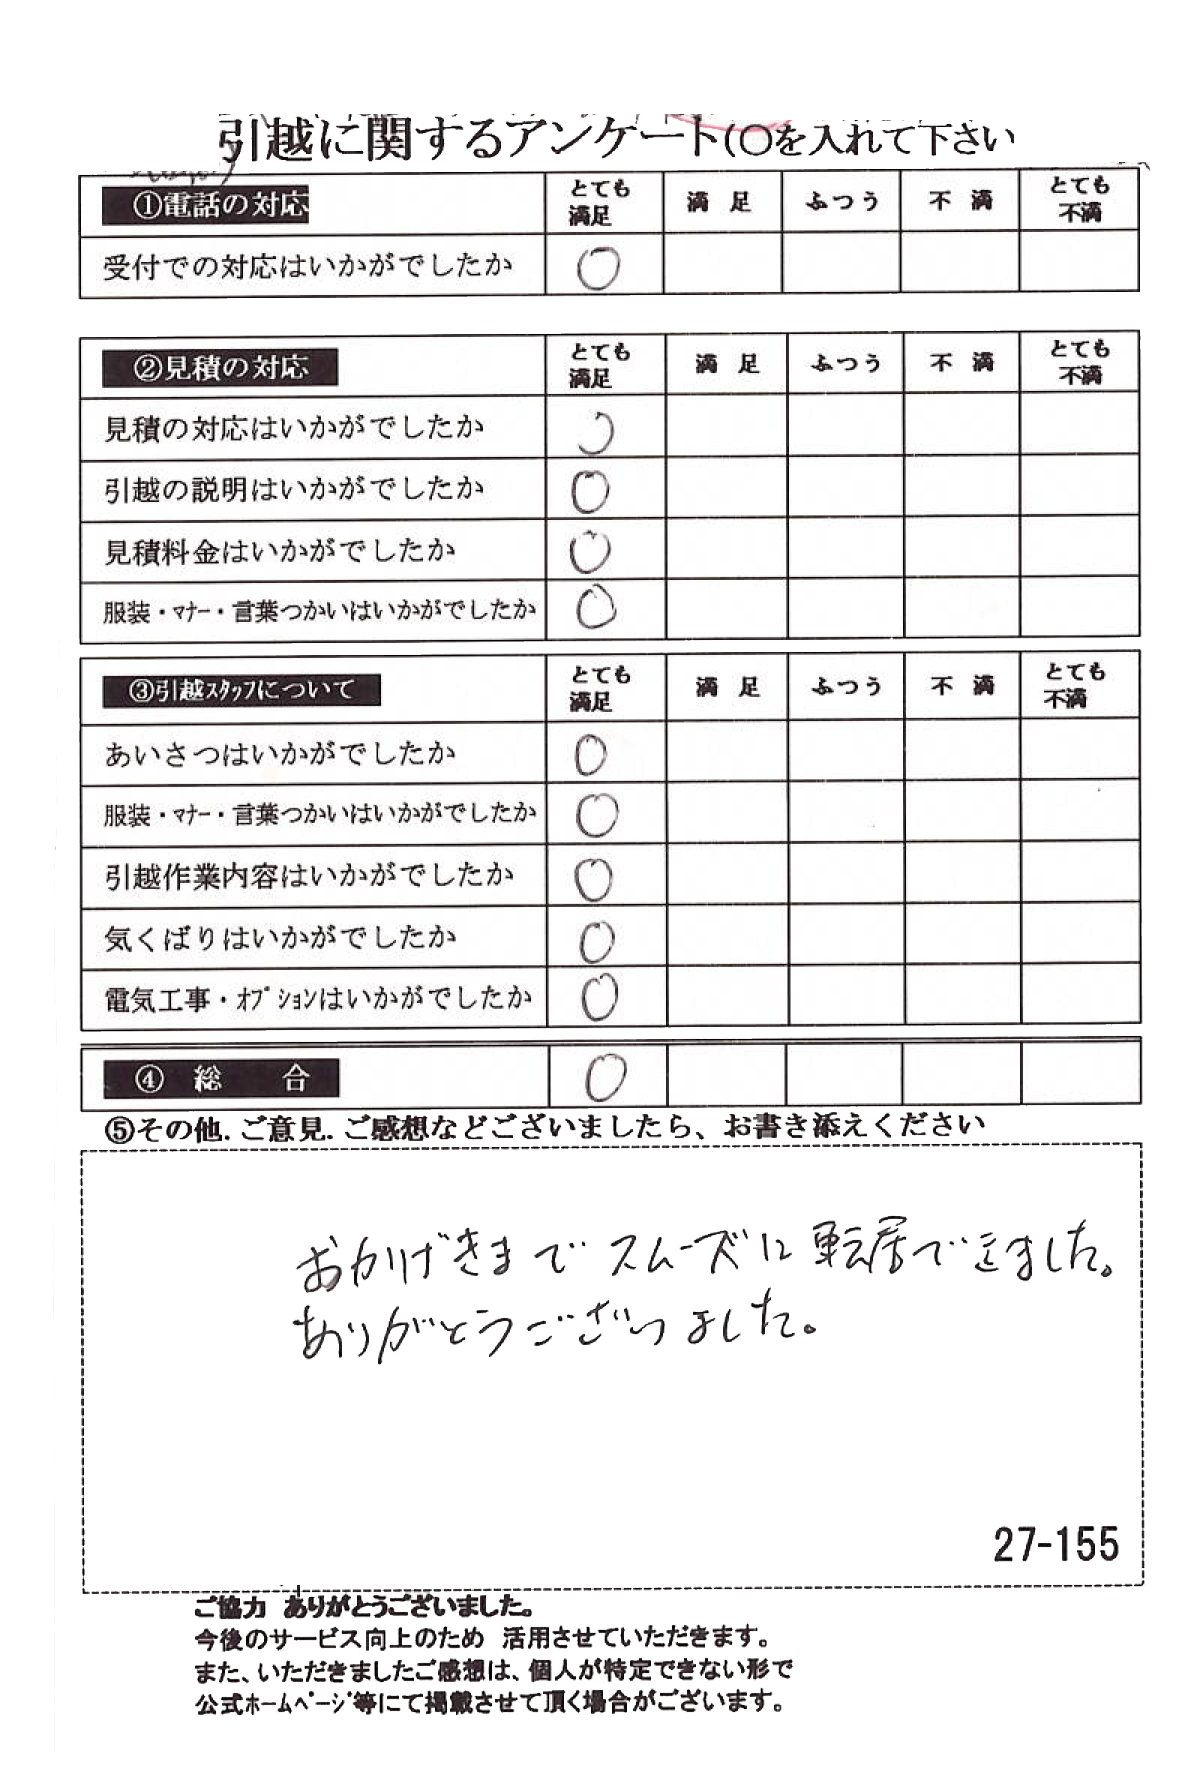 引越に関するアンケート(○を入れて下さい
①電話の対応 とても満足 満足 ふつう 不満 とても不満
受付での対応はいかがでしたか ○
②見積の対応 とても満足 満足 ふつう 不満 とても不満
見積の対応はいかがでしたか ○
引越の説明はいかがでしたか ○
見積料金はいかがでしたか ○
服装・マナー・言葉つかいはいかがでしたか ○
③引越スタッフについて とても満足 満足 ふつう 不満 とても不満
あいさつはいかがでしたか ○
服装・マナー・言葉つかいはいかがでしたか ○
引越作業内容はいかがでしたか ○
気くばりはいかがでしたか ○
電気工事・オプションはいかがでしたか ○
④総合 ○
⑤その他.ご意見.ご感想などございましたら、お書き添えください
おかげさまでスムーズに転居できました。
ありがとうございました。
27-155
ご協力 ありがとうございました。
今後のサービス向上のため 活用させていただきます。
また、いただきましたご感想は、個人が特定できない形で
公式ホームページ等にて掲載させて頂く場合がございます。